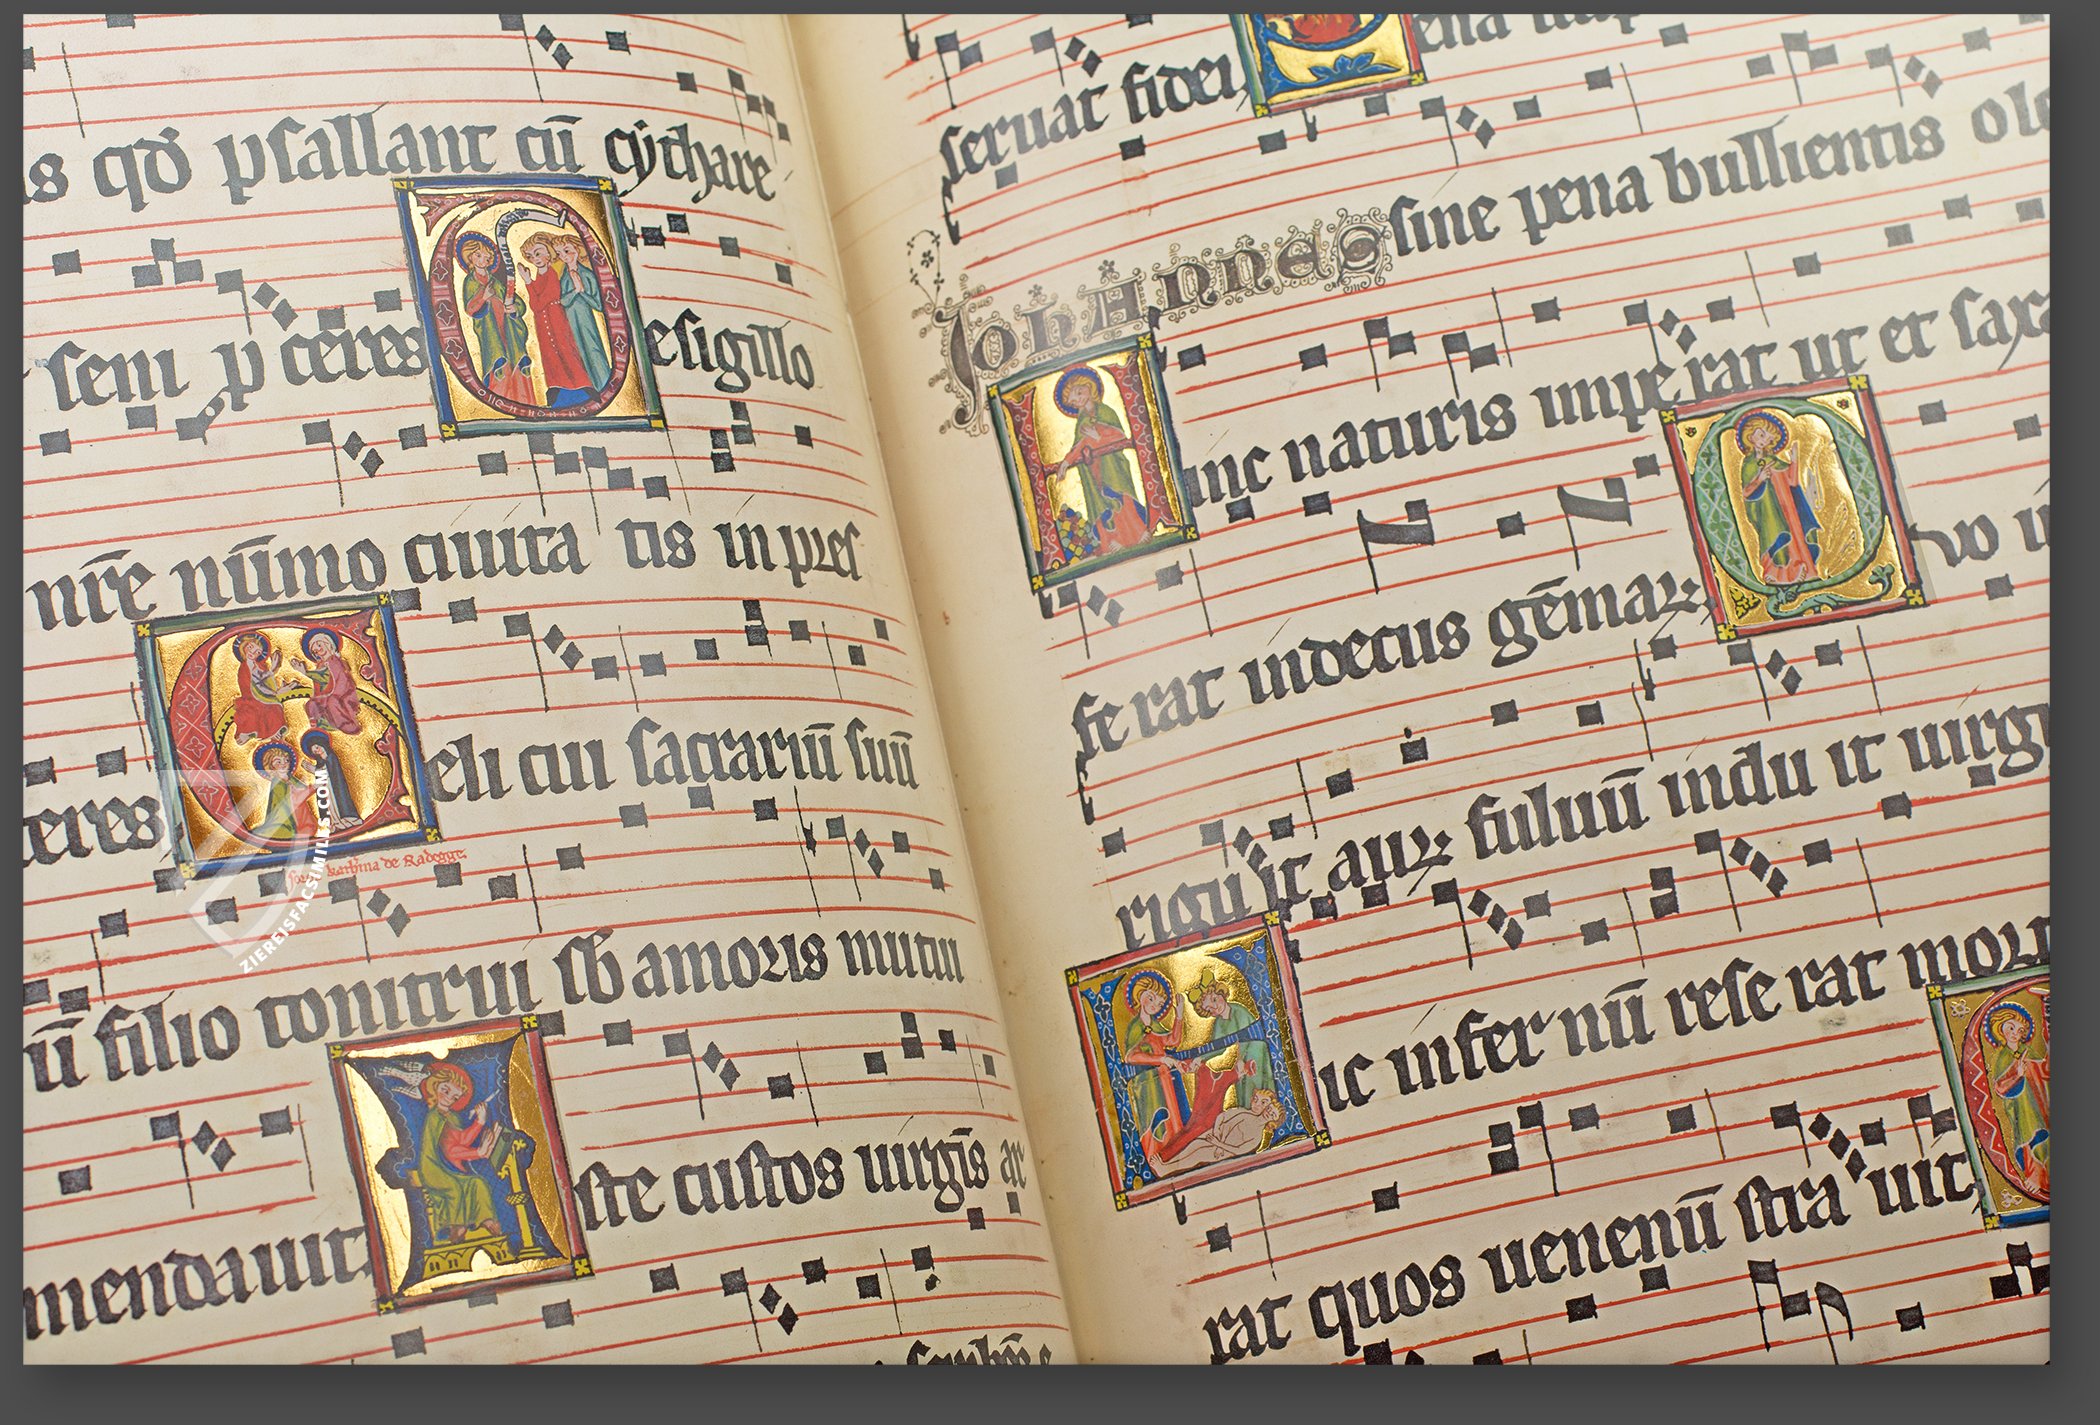 is qđ psallant cū cythare
seni p ceres Oesigillo
nr̄e nūmo ciuita tis in pres
ceres Celi cui sacrariū suū
soror katħina de Radegge
ū filio tonitrui sb amoris mutui
mendauit Iste custos uirgīs ar
seruat fidei
Johannes sine pena bullientis ole
Hunc naturis imperat ut et saxa
ferat indecus gēmaꝝ Quo i
rigu it auꝝ fuluū indu it uirgu
Hic infer nū rese rat mort
rat quos uenenū stra uit
ZIEREISFACSIMILES.COM